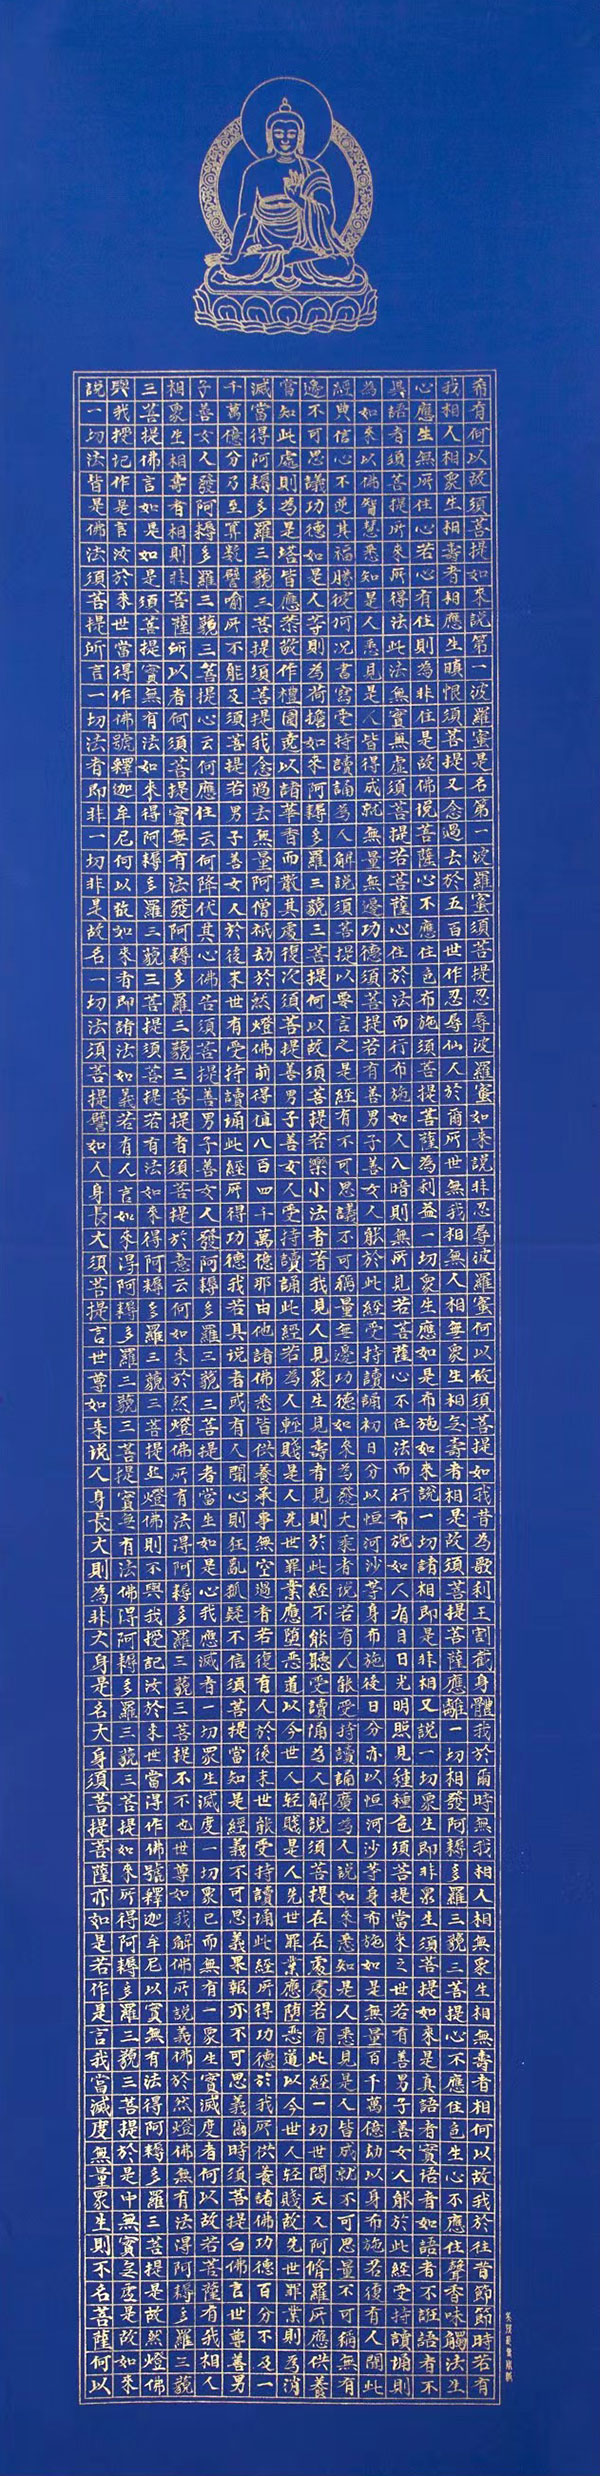 希有何以故須菩提如來說第一波羅蜜是名第一波羅蜜須菩提忍辱波羅蜜如來說非忍辱波羅蜜何以故須菩提如我昔為歌利王割截身體我於爾時無我相人相無眾生相無壽者相何以故我於往昔節節時若有
我相人相眾生相壽者相應生瞋恨須菩提又念過去於五百世作忍辱仙人於爾所世無我相無人相無眾生相无壽者相是故須菩提菩薩應離一切相發阿耨多羅三藐三菩提心不應住色生心不應住聲香味觸法生
心應生無所住心若心有住則為非住是故佛說菩薩心不應住色布施須菩提菩薩為利益一切眾生應如是布施如來說一切諸相即是非相又說一切眾生即非眾生須菩提如來是真語者實語者如語者不誑語者不
異語者須菩提如來所得法此法無實無虛須菩提若菩薩心住於法而行布施如人入暗則無所見若菩薩心不住法而行布施如人有目日光明照見種種色須菩提當來之世若有善男子善女人能於此經受持讀誦則
為如來以佛智慧悉知是人悉見是人皆得成就無量無邊功德須菩提若有善男子善女人能於此經受持讀誦初日分以恒河沙等身布施後日分亦以恒河沙等身布施如是無量百千萬億劫以身布施若復有人聞此
經典信心不逆其福勝彼何況書寫受持讀誦為人解說須菩提以要言之是經有不可思議不可稱量無邊功德如來為發大乘者說若有人能受持讀誦廣為人說如來悉知是人悉見是人皆成就不可思量不可稱無有
邊不可思議功德如是人等則為荷擔如來阿耨多羅三藐三菩提何以故須菩提若樂小法者著我見人見眾生見壽者見則於此經不能聽受讀誦為人解說須菩提在在處處若有此經一切世間天人阿脩羅所應供養
當知此處則為是塔皆應恭敬作禮圍遶以諸華香而散其處復次須菩提善男子善女人受持讀誦此經若為人輕賤是人先世罪業應墮惡道以今世人輕賤是人先世罪業應墮惡道以今世人輕賤故先世罪業則為消
滅當得阿耨多羅三藐三菩提須菩提我念過去無量阿僧祇劫於然燈佛前得值八百四千萬億那由他諸佛悉皆供養承事無空過者若復有人於後末世能受持讀誦此經所得功德於我所供養諸佛功德百分不及一
千萬億分乃至算數譬喻所不能及須菩提若男子善女人於後末世有受持讀誦此經所得功德我若具說者或有人聞心則狂亂狐疑不信須菩提當知是經義不可思義果報亦不可思義爾時須菩提白佛言世尊善男
子善女人發阿耨多羅三藐三菩提心云何應住云何降伏其心佛告須菩提善男子善女人發阿耨多羅三藐三菩提者當生如是心我應滅者一切眾生滅度一切眾已而無有一眾生實滅度者何以故若菩薩有我相人
相眾生相壽有相則非菩薩所以者何須菩提實無有法發阿耨多羅三藐三菩提者須菩提於意云何如來於然燈佛所有法得阿耨多羅三藐三菩提不不也世尊如我解佛所說義佛於然燈佛無有法得阿耨多羅三藐
三菩提佛言如是如是須菩提實無有法如來得阿耨多羅三藐三菩提須菩提若有法如來得阿耨多羅三藐三菩提然燈佛則不與我授記汝於來世當得作佛號釋迦牟尼以實無有法得阿耨多羅三菩提是故然燈佛
與我授記作是言汝於來世當得作佛號釋迦牟尼何以故如來者即諸法如義若有人言如來得阿耨多羅三藐三菩提實无有法佛得阿耨多羅三藐三菩提如來所得阿耨多羅三藐三菩提於是中無實无虛是故如來
說一切法皆是佛法須菩提所言一切法者即非一切非是故名一切法須菩提譬如人身長大須菩提言世尊如來說人身長大則為非大身是名大身須菩提菩薩亦如是若作是言我當滅度無量眾生則不名菩薩何以